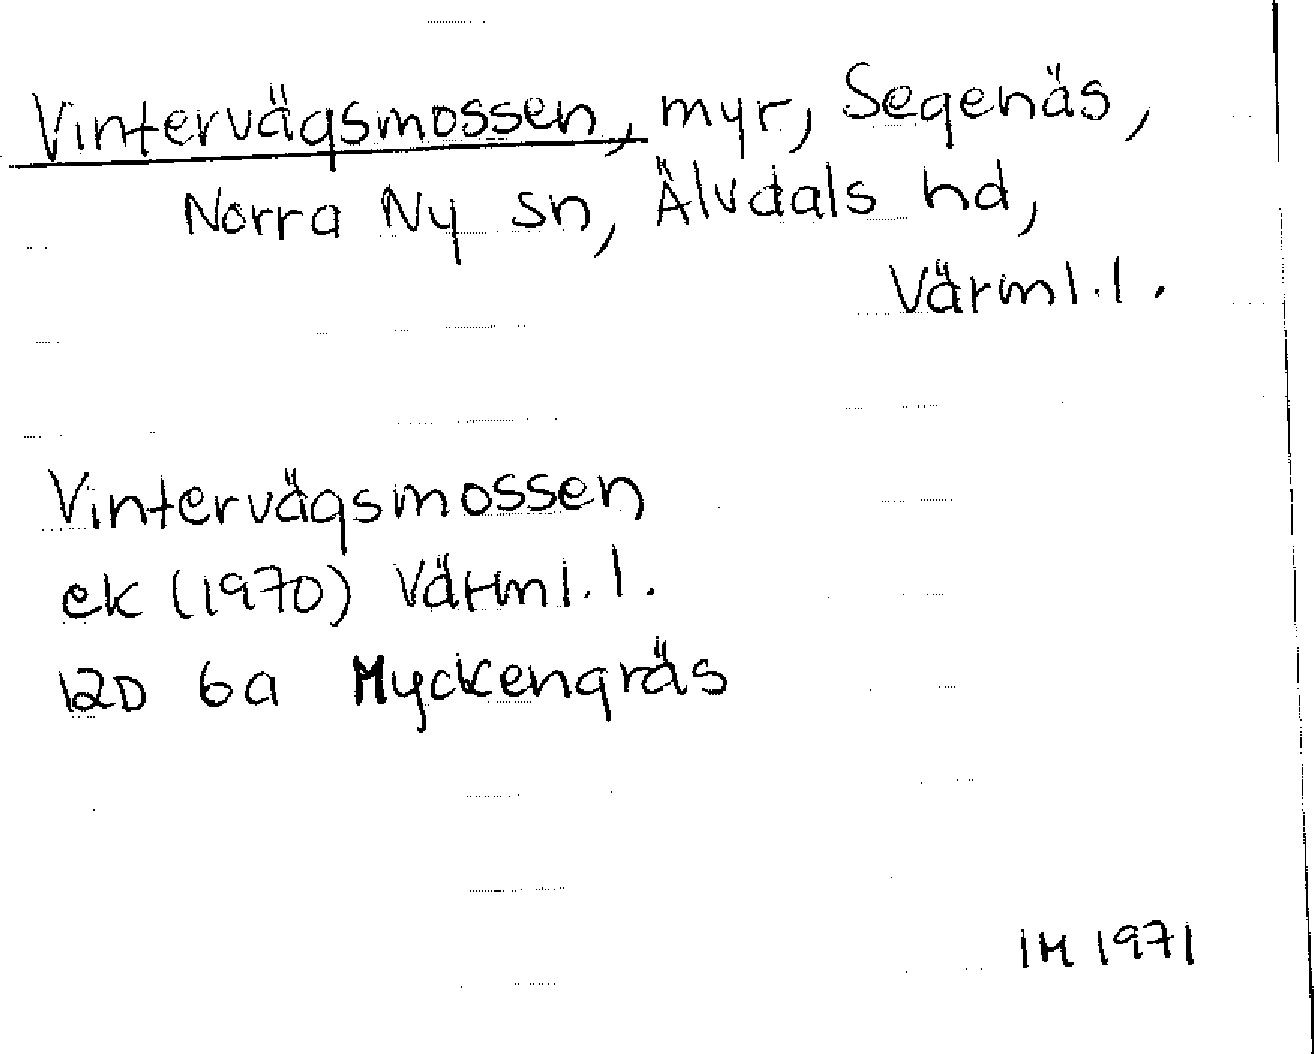 Vintervägsmossen, myr, Segenäs,
Norra Ny sn, Älvdals hd,
Värml.l.
Vintervägsmossen
ek (1970) Värml.l.
12D 6a Myckengräs
IM 1971